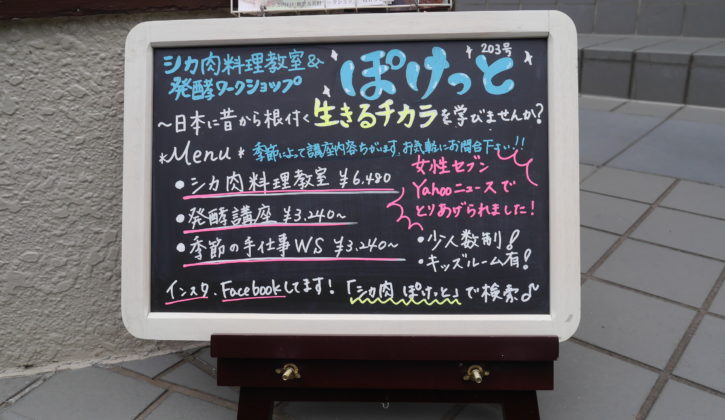 シカ肉料理教室&
発酵ワークショップ
ぽけっと
203号
〜日本に昔から根付く生きるチカラを学びませんか?
*Menu* 季節によって講座内容ちがいます。お気軽にお問合下さい!!
• シカ肉料理教室 ¥6,480
• 発酵講座 ¥3,240〜
• 季節の手仕事WS ¥3,240〜
女性セブン
Yahooニュースで
とりあげられました!
• 少人数制!
• キッズルーム有!
インスタ、Facebookしてます!「シカ肉 ぽけっと」で検索♪